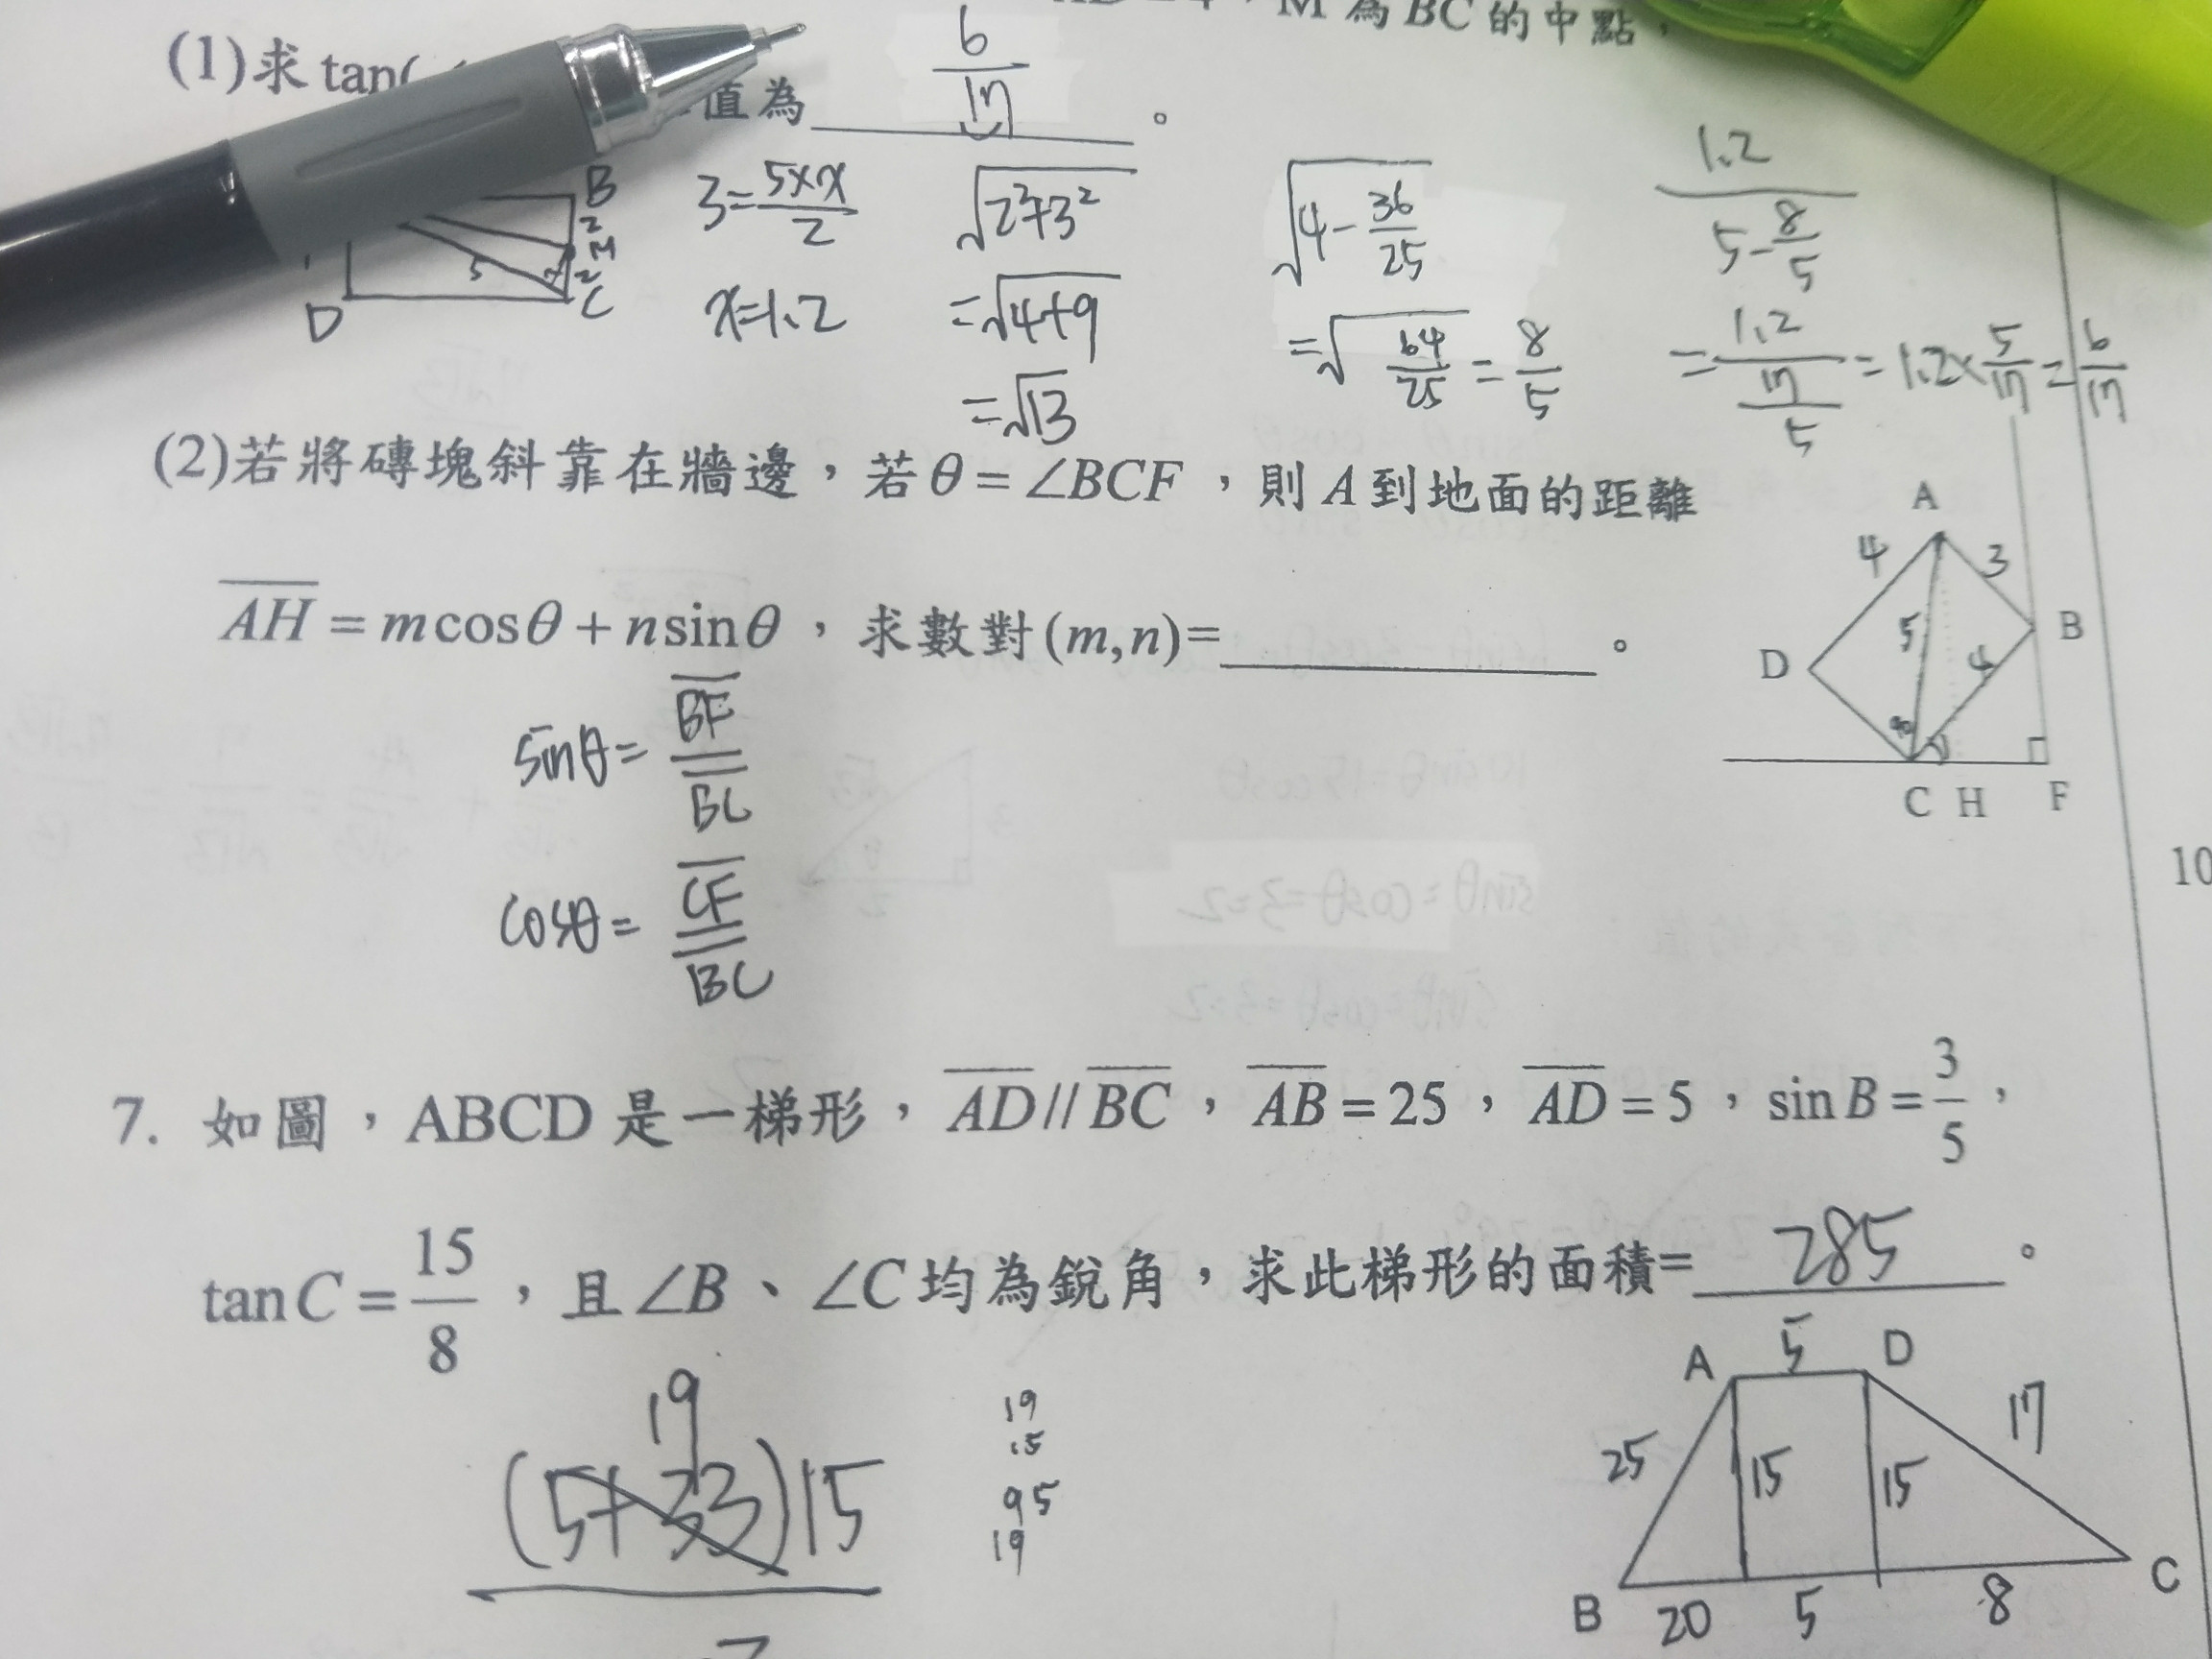 M 為 BC 的中點，
(1)求 tan(
值為 6/17 。
B
2
M
2
C
D
5
3=5×x/2
x=1.2
√2²+3²
=√4+9
=√13
√4-36/25
=√64/25=8/5
1.2/5-8/5
=1.2/17/5=1.2×5/17=6/17
(2)若將磚塊斜靠在牆邊，若θ=∠BCF，則A到地面的距離
AH=mcosθ+nsinθ，求數對(m,n)=______。
A
4
3
5
4
B
D
C H F
sinθ=BF/BC
cosθ=CF/BC
10
7. 如圖，ABCD 是一梯形，AD//BC，AB=25，AD=5，sinB=3/5，
tanC=15/8，且∠B、∠C均為銳角，求此梯形的面積=285。
19
(5+33)15
2
19
15
95
19
A 5 D
25
15
15
17
B 20 5 8 C